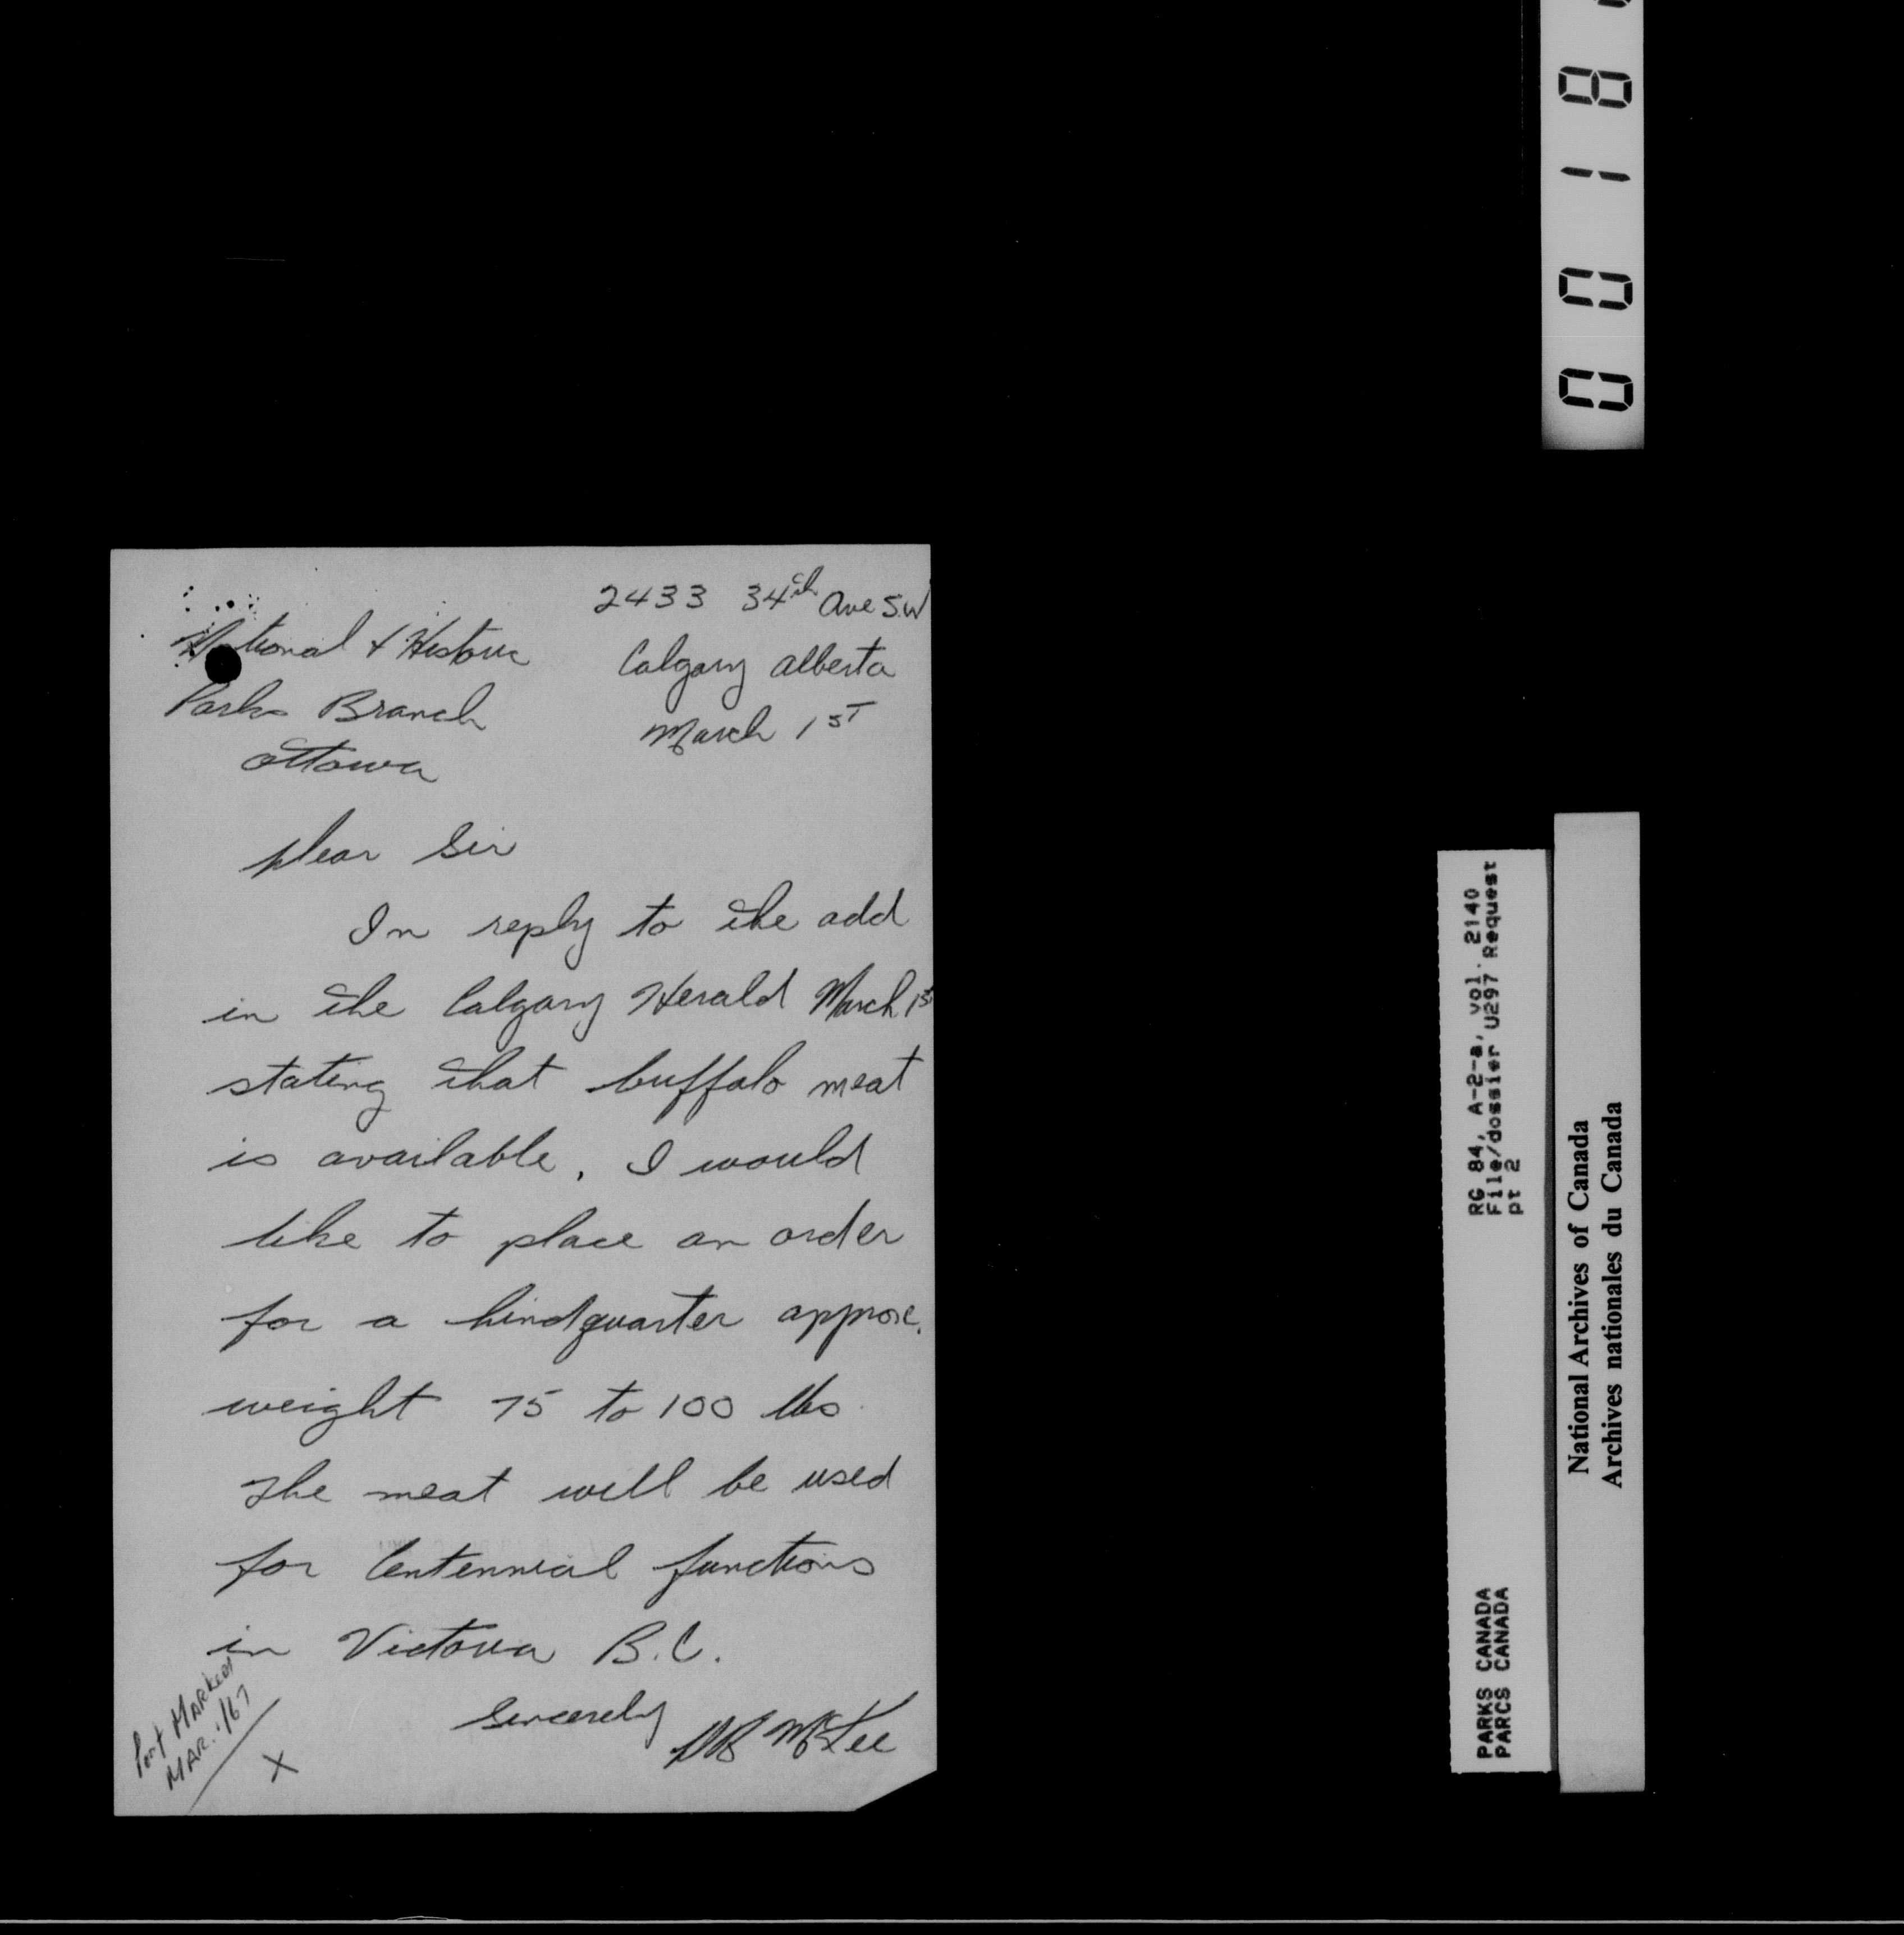 2433 34th Ave S.W
Calgary Alberta
March 1ST
National & Historic
Parks Branch
Ottawa
Dear Sir
In reply to the add
in the Calgary Herald March 1st
stating that buffalo meat
is available, I would
like to place an order
for a hindquarter approx.
weight 75 to 100 lbs.
The meat will be used
for Centennial functions
in Victoria B.C.
Sincerely
McKee
Post MARKED
MAR. 1/67
X
0018
RG 84, A-2-a, vol. 2140
File/dossier U297 Request
pt 2
PARKS CANADA
PARCS CANADA
National Archives of Canada
Archives nationales du Canada